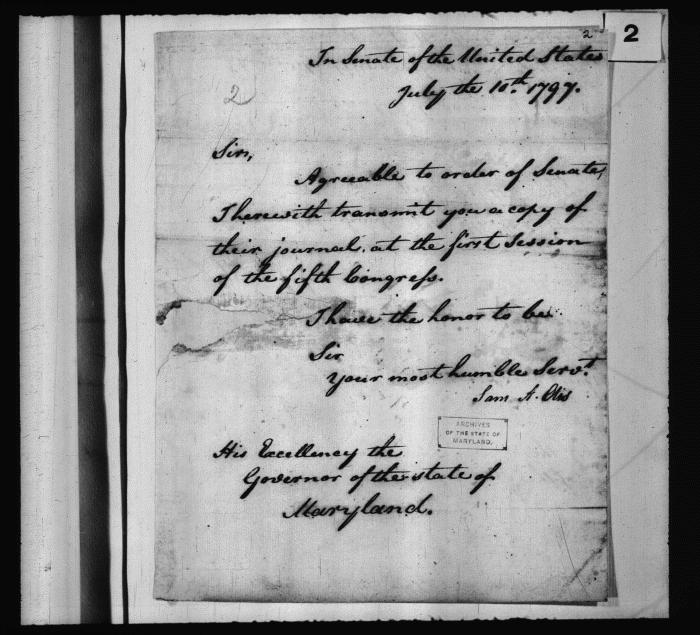 2
2
2
In Senate of the United States
July the 10th. 1797.
Sir,
Agreeable to order of Senate,
I herewith transmit you a copy of
their journal, at the first Session
of the fifth Congress.
I have the honor to be
Sir
your most humble Servt.
Sam A. Otis
ARCHIVES
OF THE STATE OF
MARYLAND.
His Excellency the
Governor of the state of
Maryland.